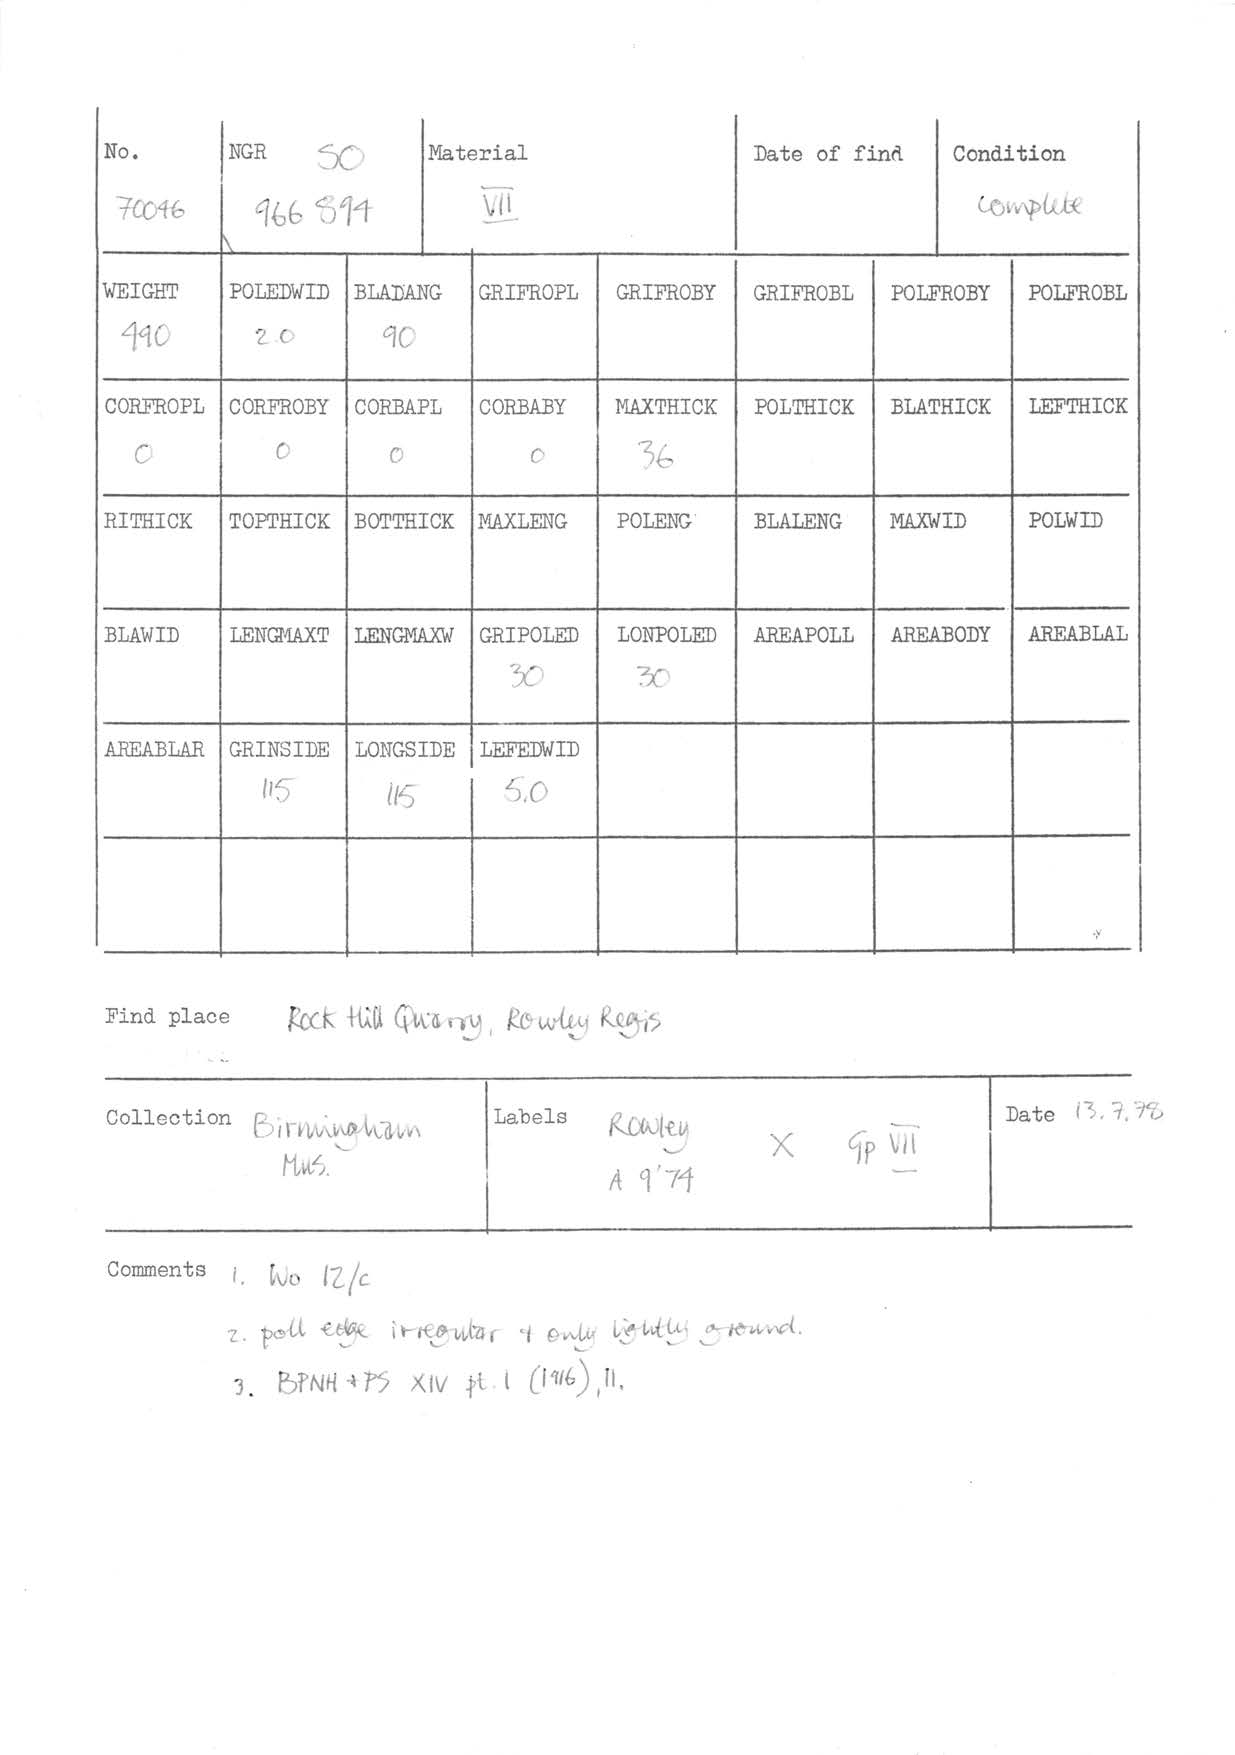 No. NGR SO Material Date of find Condition
70046 966 894 VII complete
WEIGHT POLEDWID BLADANG GRIFROPL GRIFROBY GRIFROBL POLFROBY POLFROBL
490 2.0 90
CORFROPL CORFROBY CORBAPL CORBABY MAXTHICK POLTHICK BLATHICK LEFTHICK
0 0 0 0 36
RITHICK TOPTHICK BOTTHICK MAXLENG POLENG BLALENG MAXWID POLWID
BLAWID LENGMAXT LENGMAXW GRIPOLED LONPOLED AREAPOLL AREABODY AREABLAL
30 30
AREABLAR GRINSIDE LONGSIDE LEFEDWID
115 115 5.0
Find place Rock Hill Quarry, Rowley Regis
Collection Birmingham Labels Rowley X Gp VII Date 13.7.78
Mus. A 9'74
Comments 1. Wo 12/c
2. poll edge irregular + only lightly ground.
3. BPNH + PS XIV pt. 1 (1916), 11.